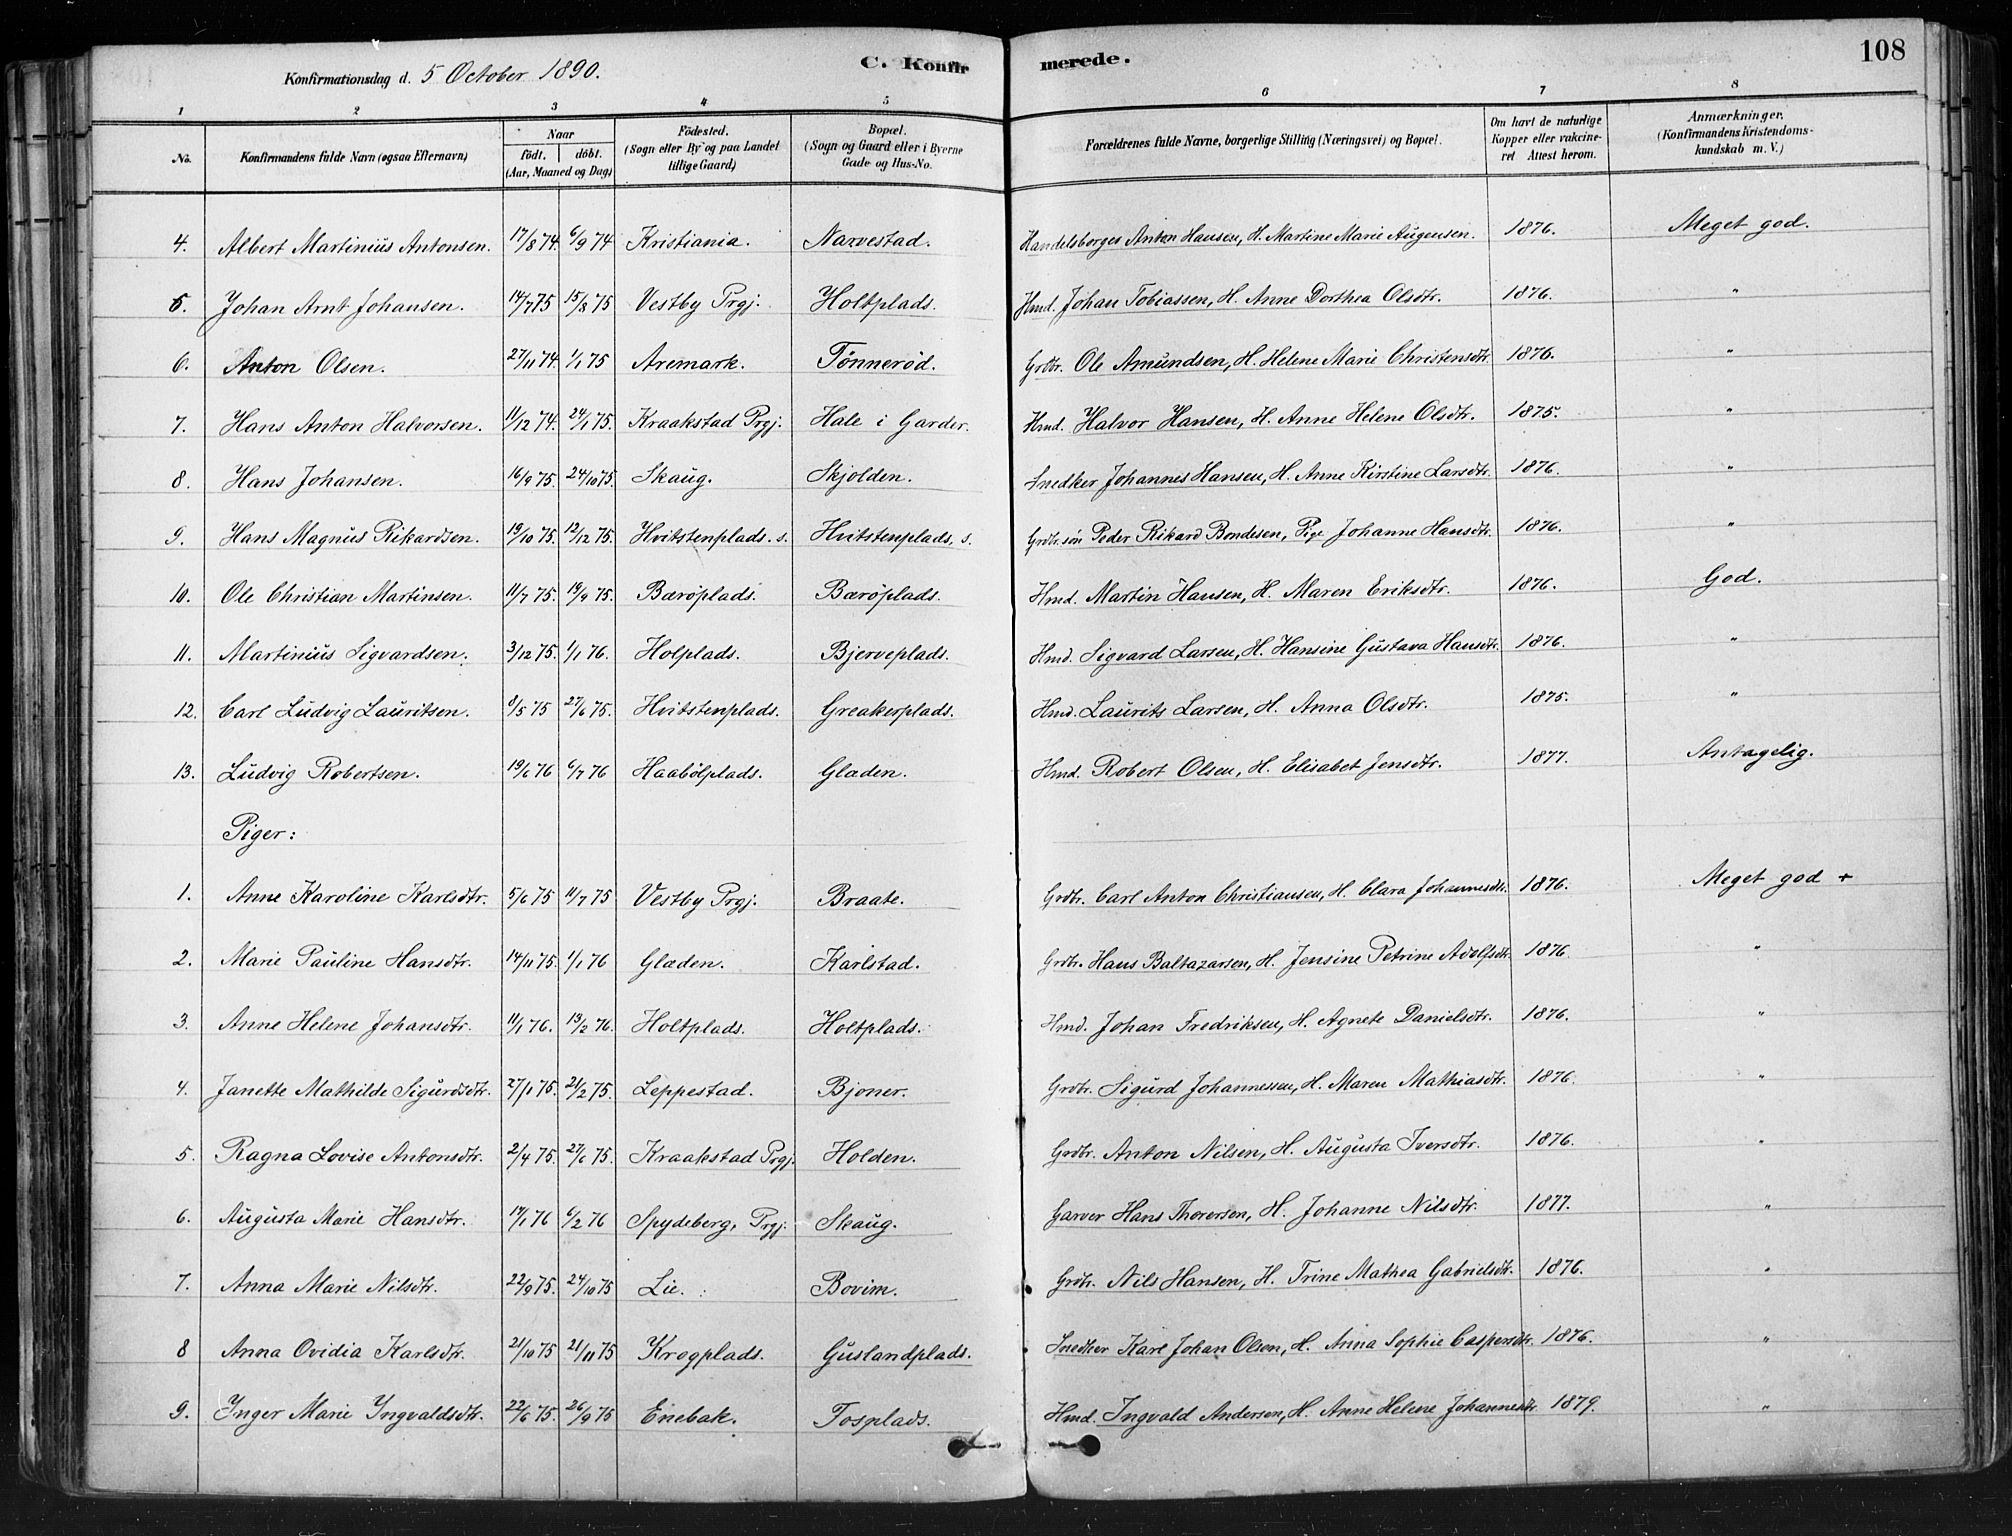 108
Konfirmationsdag d. 5 October 1890. C. Konfirmerede.
1 2 3 4 5 6 7 8
No. Konfirmandens fulde Navn (ogsaa Efternavn) Naar født. døbt. (Aar, Maaned og Dag) Fødested. (Sogn eller By og paa Landet tillige Gaard) Bopæl. (Sogn og Gaard eller i Byerne Gade og Hus-No. Forældrenes fulde Navne, borgerlige Stilling (Næringsvei) og Bopæl. Om havt de naturlige Kopper eller vakcineret Attest herom. Anmærkninger. (Konfirmandens Kristendomskundskab m. V.)
4. Albert Martinius Antonsen. 17/8 74. 6/9 74 Kristiania. Narvestad. Handelsborger Anton Hansen, H. Martine Marie Augensen. 1876. Meget god.
5. Johan Arnt Johansen. 14/7 75 15/8 75 Vestby Prgj. Holtplads. Hmd. Johan Tobiassen, H. Anne Dorthea Olsdtr. 1876. "
6. Anton Olsen. 27/11 74. 1/1 75 Aremark. Tönneröd. Grdbr. Ole Amundsen, H. Helene Marie Christensdtr. 1876. "
7. Hans Anton Halvorsen. 11/12 74. 24/1 75. Kraakstad Prgj. Hale i Garder. Hmd. Halvor Hansen, H. Anne Helene Olsdtr. 1875. "
8. Hans Johansen. 16/9 75. 24/10 75. Skaug. Skjolden. Snedker Johannes Hansen, H. Anne Kirstine Larsdtr. 1876. "
9. Hans Magnus Rikardsen. 19/10 75. 12/12 75. Hvitstenplads. s. Hvitstenplads. s. Grdbr.sön Peder Rikard Bondesen, Pige Johanne Hansdtr. 1876. "
10. Ole Christian Martinsen. 11/7 75. 19/9 75. Beröplads. Beröplads. Hmd. Martin Hansen, H. Maren Eriksdtr. 1876. God.
11. Martinius Sigvardsen. 3/12 75. 1/1 76. Holplads. Bjerveplads. Hmd. Sigvard Larsen, H. Hansine Gustava Hansdtr. 1876. "
12. Carl Ludvig Lauritsen. 8/5 75 27/6 75. Hvitstenplads. Greakerplads. Hmd. Laurits Larsen, H. Anna Olsdtr. 1875. "
13. Ludvig Robertsen. 19/6 76 6/7 76 Haabölplads. Glæden. Hmd. Robert Olsen, H. Elisabet Jensdtr. 1877. Antagelig.
Piger:
1. Anne Karoline Karlsdtr. 5/6 75 11/7 75 Vestby Prgj. Braate. Grdbr. Carl Anton Christiansen, H. Clara Johannesdtr. 1876. Meget god +
2. Marie Pauline Hansdtr. 14/11 75. 1/1 76 Glæden. Karlstad. Grdbr. Hans Baltazarsen, H. Jensine Petrine Adolfsdtr. 1876. "
3. Anne Helene Johansdtr. 11/1 76. 13/2 76. Holtplads. Holtplads. Hmd. Johan Fredriksen, H. Agnete Danielsdtr. 1876. "
4. Janette Mathilde Sigurdsdtr. 27/1 75. 21/2 75. Leppestad. Bjoner. Grdbr. Sigurd Johannessen, H. Maren Mathiasdtr. 1876. "
5. Ragna Lovise Antonsdtr. 2/4 75. 27/6 75. Kraakstad Prgj. Holden. Grdbr. Anton Nilsen, H. Augusta Iversdtr. 1876. "
6. Augusta Marie Hansdtr. 14/1 76 6/2 76 Spydeberg, Prgj. Skaug. Garver Hans Thorersen, H. Johanne Nilsdtr. 1877. "
7. Anna Marie Nilsdtr. 22/9 75. 24/10 75 Lie. Bovim. Grdbr. Nils Hansen, H. Trine Mathea Gabrielsdtr. 1876. "
8 Anna Ovidia Karlsdtr. 21/10 75 21/11 75 Krogplads. Guslandplads. Snedker Karl Johan Olsen, H. Anna Sophie Caspersdtr. 1876. "
9. Inger Marie Ingvaldsdtr. 22/6 75. 26/9 75 Enebak. Tosplads. Hmd. Ingvald Andersen, H. Anne Helene Johannesdtr 1879. "